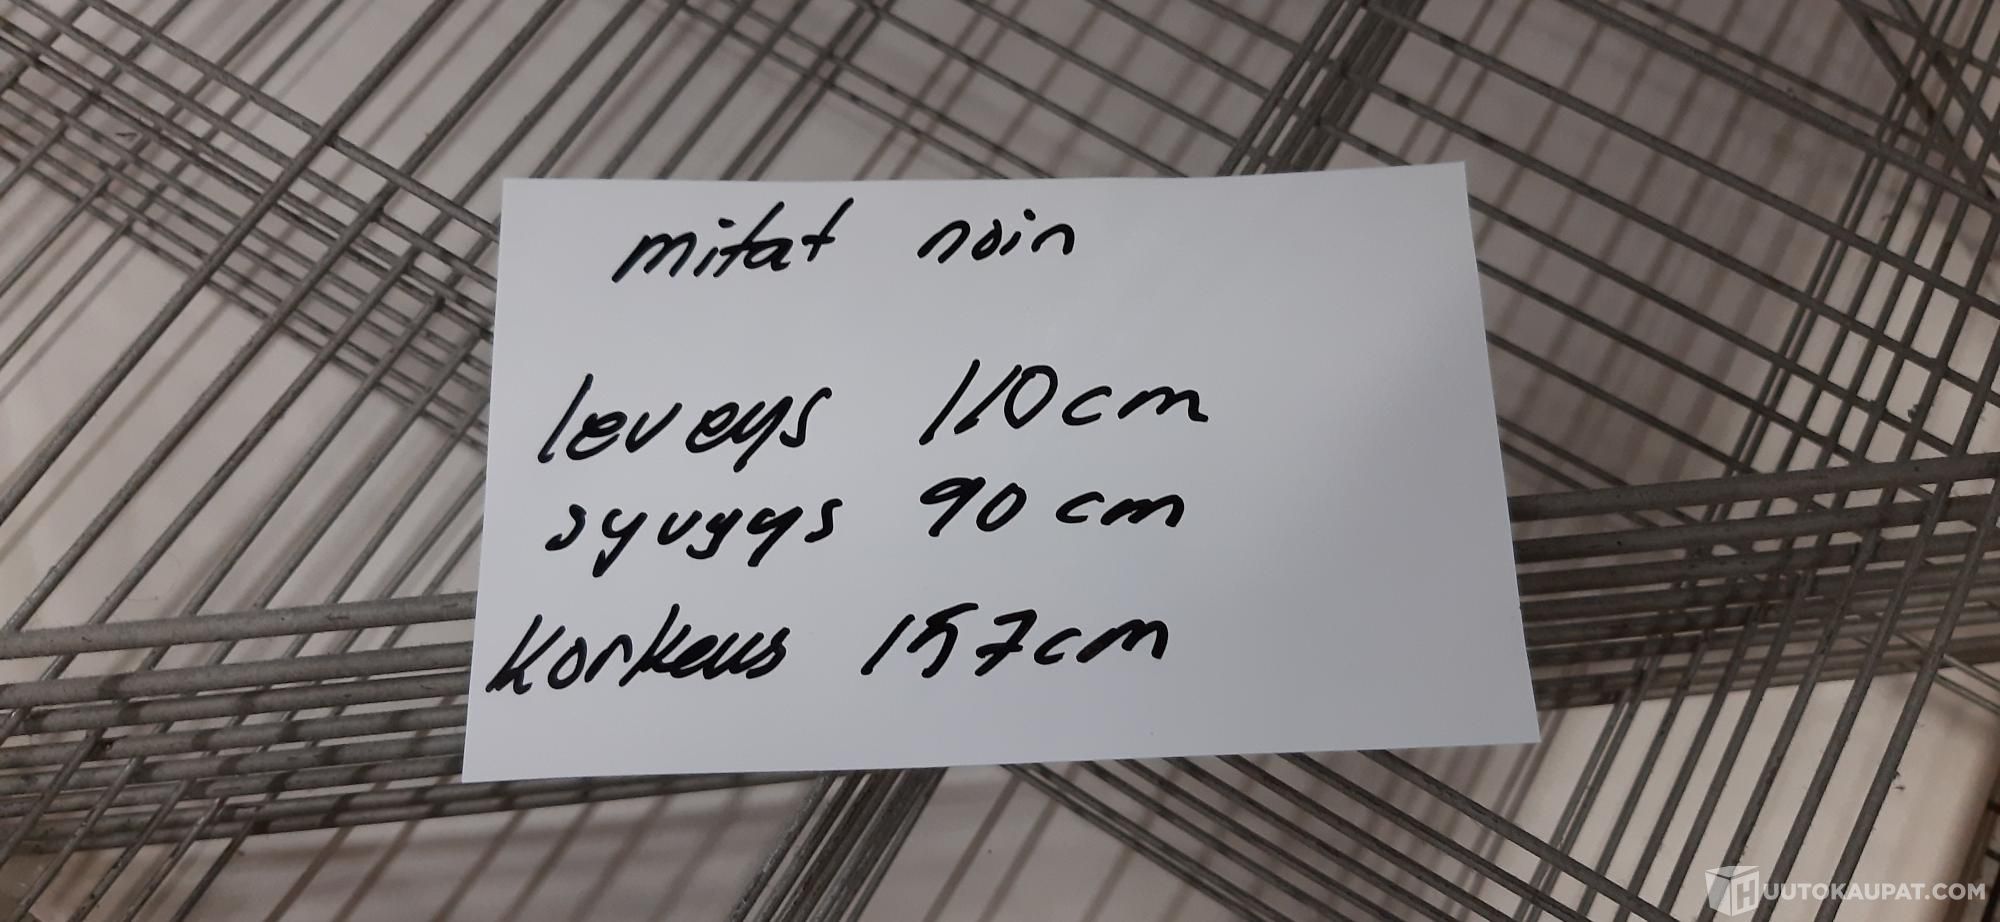 mitat noin
leveys 110 cm
syvyys 90 cm
korkeus 157 cm
HUUTOKAUPAT.COM